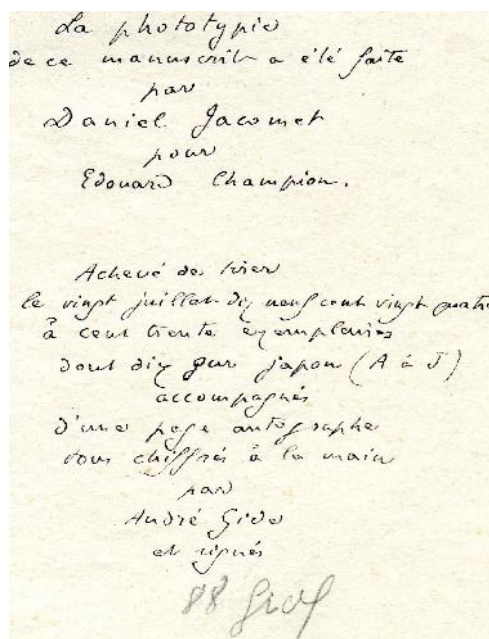 La phototypie
de ce manuscrit a été faite
par
Daniel Jacomet
pour
Edouard Champion.
Achevé de tirer
le vingt juillet dix neuf cent vingt quatre
à cent trente exemplaires
dont dix sur japon (A à J)
accompagnés
d'une page autographe
tous chiffrés à la main
par
André Gide
et signés
88 Gide